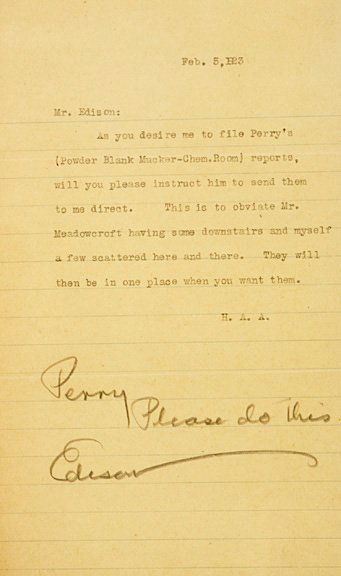 Feb. 5,123
Mr. Edison:
As you desire me to file Perry's
(Powder Blank Mucker-Chem.Room) reports,
will you please instruct him to send them
to me direct. This is to obviate Mr.
Meadowcroft having some downstairs and myself
a few scattered here and there. They will
then be in one place when you want them.
H. A. A.
Perry
Please do this
Edison